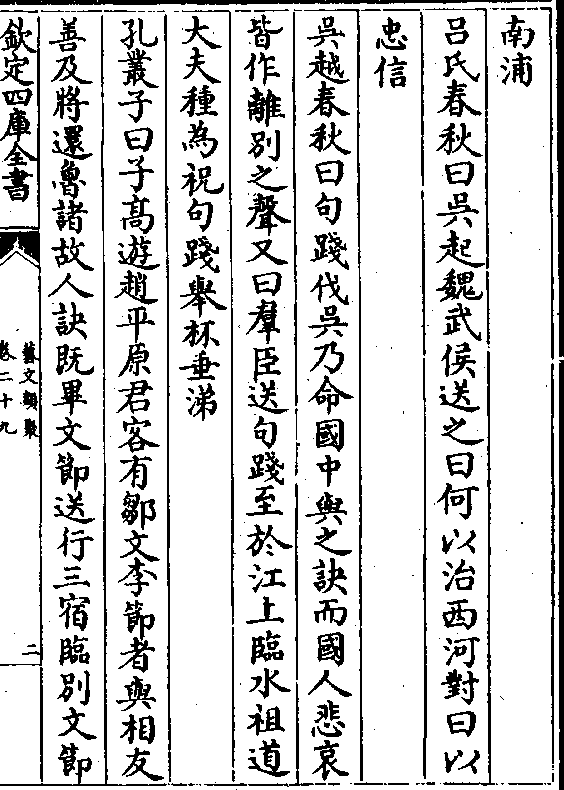 南浦
吕氏春秋曰吳起魏武侯送之曰何以治西河對曰以
忠信
吳越春秋曰句踐伐吳乃命國中與之訣而國人悲哀
皆作離别之聲又曰羣臣送句踐至於江上臨水祖道
大夫種為祝句踐舉杯垂涕
孔叢子曰子髙遊趙平原君客有鄒文李節者與相友
善及將還魯諸故人訣既畢文節送行三宿臨别文節
欽定四庫全書
藝文類聚
卷二十九
二